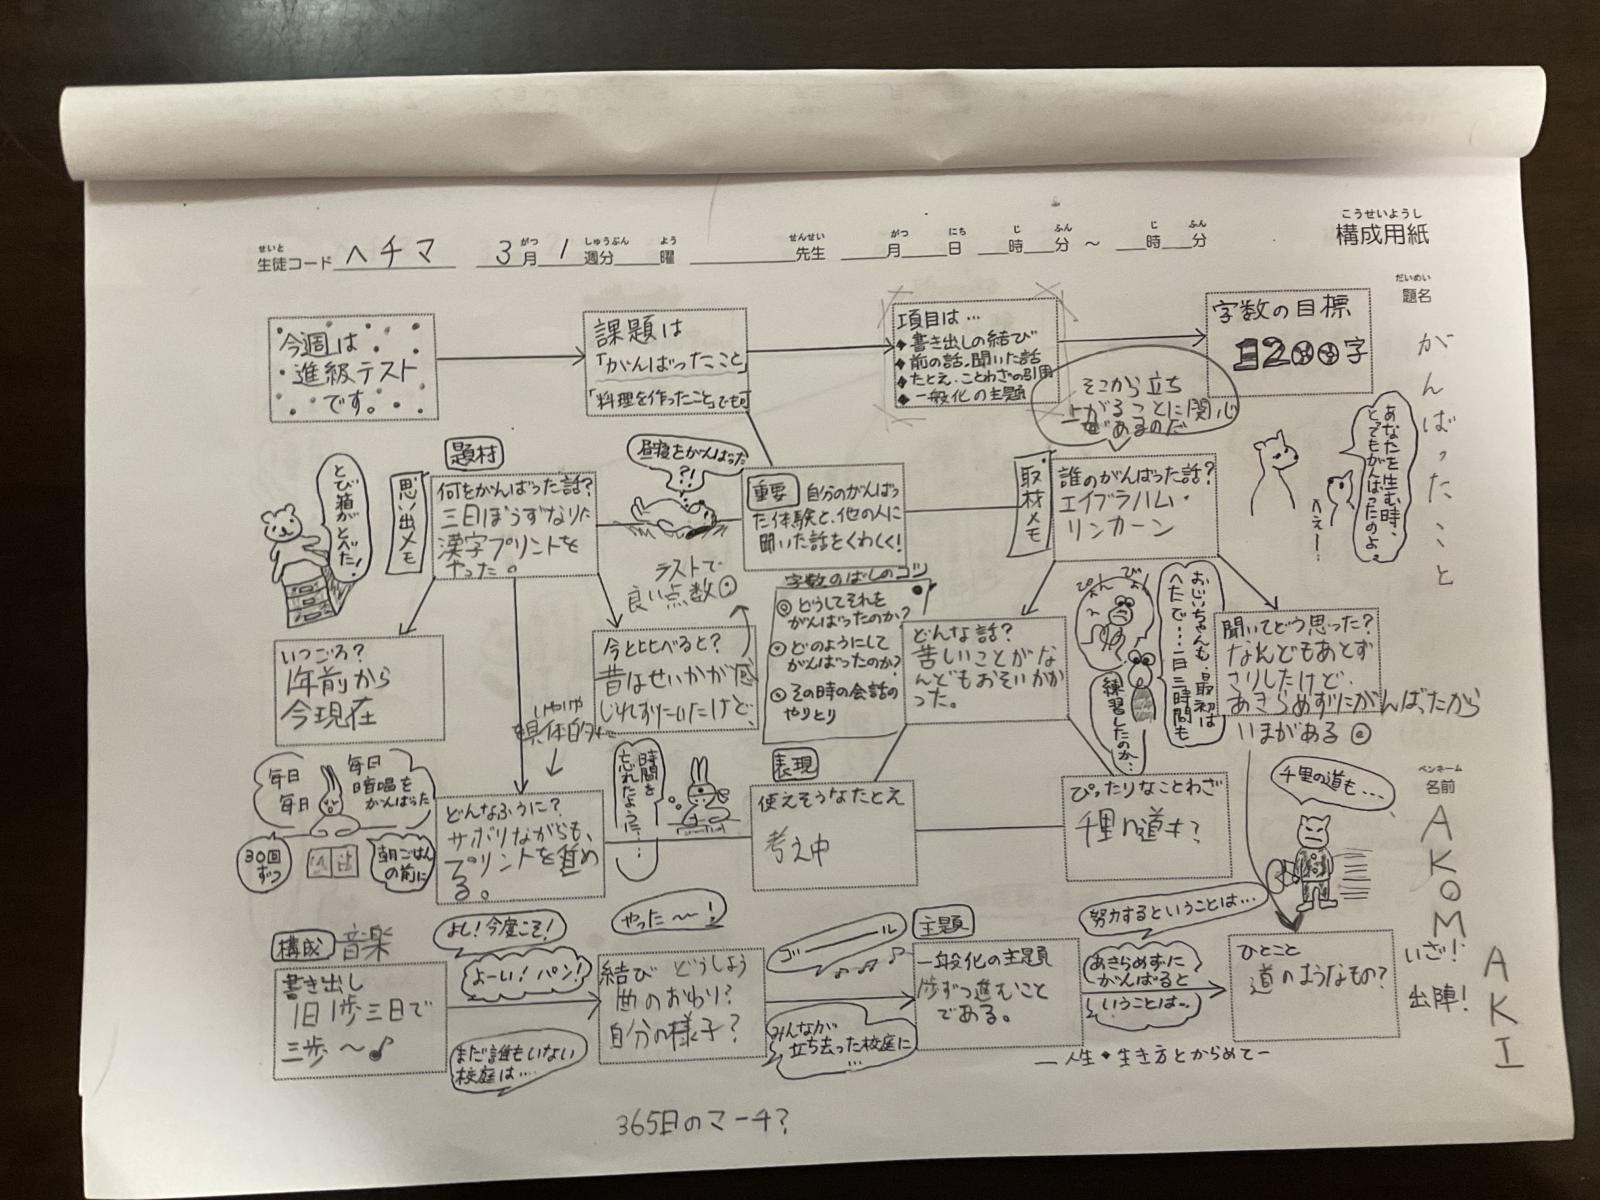 こうせいようし
構成用紙
せいと
生徒コード ヘチマ 3月 1週分 曜 先生 月 日 時 分 ～ 時 分
がつ しゅうぶん よう せんせい がつ にち じ ふん じ ふん
だいめい
題名
がんばったこと
ペンネーム
名前
AKOM
AKI
今週は
進級テスト
です。
課題は
「がんばったこと」
「料理を作ったこと」でも可
項目は…
◆書き出しの結び
◆前の話、聞いた話
◆たとえ・ことわざの引用
◆一般化の主題
字数の目標
1200字
そこから立ち
上がることに関心
があるのだ
あなたを生む時、
とてもがんばったのよ。
へぇー…
とび箱がとべた！
思い出メモ
題材
何をがんばった話？
三日ぼうずなりに
漢字プリントを
やった。
昼寝をがんばった
?!
テストで
良い点数
重要 自分のがんばっ
た体験と、他の人に
聞いた話をくわしく！
取材メモ
誰のがんばった話？
エイブラハム・
リンカーン
いつごろ？
1年前から
今現在
今と比べると？
昔はせいかが感
じれしずらいたけど、
字数のばしのコツ
◎どうしてそれを
がんばったのか？
◎どのようにして
がんばったのか？
◎その時の会話の
やりとり
どんな話？
苦しいことがな
んどもおそいかか
った。
ぴょん
びょん
おじいちゃんも、最初は
へたで…一日三時間も
練習したのか…
聞いてどう思った？
なんどもあとず
さりしたけど、
あきらめずにがんばったから
いまがある◎
いやいや
具体的な
毎日
毎日
毎日
暗唱を
がんばった
30回
ずつ
朝ごはん
の前に
どんなふうに？
サボりながらも、
プリントを進め
る。
時間を
忘れたように…
表現
使えそうなたとえ
考え中
ぴったりなことわざ
千里の道も？
千里の道も…
構成 音楽
書き出し
1日1歩三日で
三歩～♪
よし！今度こそ！
よーい！パン！
まだ誰もいない
校庭は…
やった～～！
結び どうしよう
曲のおわり？
自分の様子？
ゴーール
みんなが
立ち去った校庭に
…
主題
一般化の主題
1歩ずつ進むこと
である。
努力するということは…
あきらめずに
がんばると
いうことは…
ひとこと
道のようなもの？
いざ！
出陣！
―人生・生き方とからめて―
365日のマーチ？